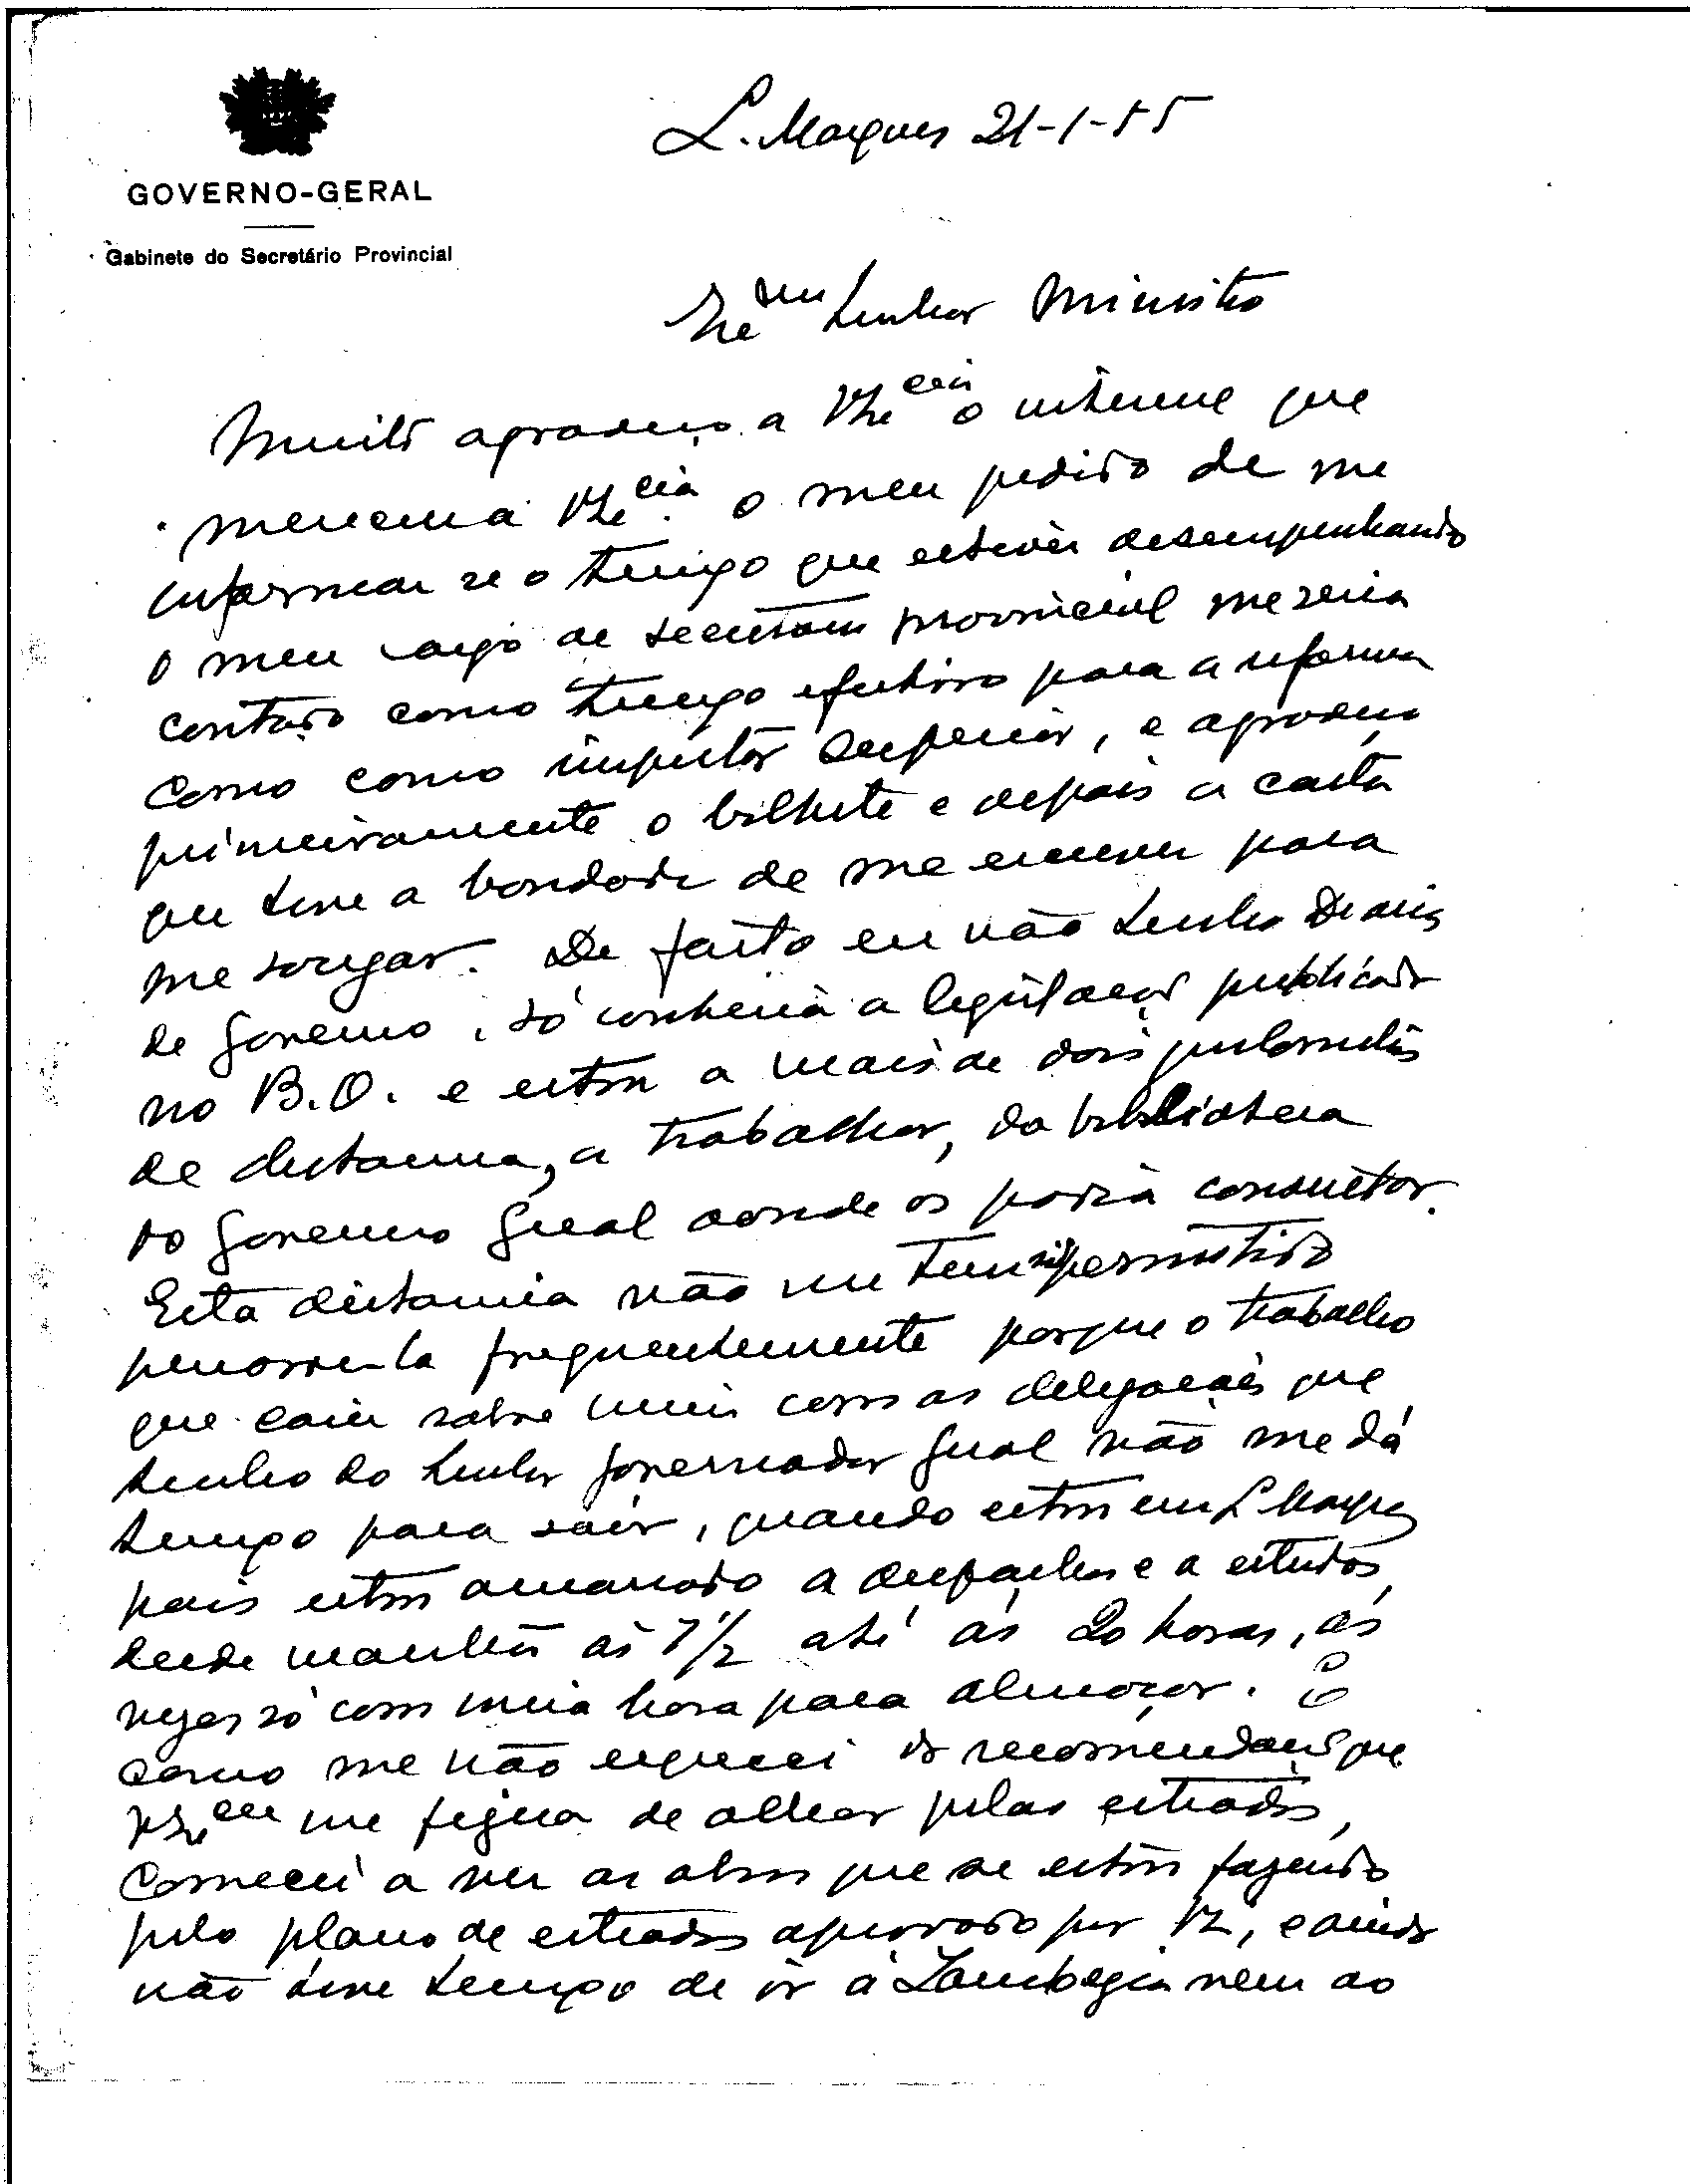 L. Marques 21-1-55
GOVERNO-GERAL
Gabinete do Secretário Provincial
Exmo Senhor Ministro
Muito agradeço a VExcia o interesse que
mereceu a VExcia o meu pedido de me
informar se o tempo que estiver desempenhando
o meu cargo de secretario provincial me seria
contado como tempo efectivo para a reforma
como como inspector superior, e agradeço
primeiramente o bilhete e depois a carta
que teve a bondade de me escrever para
me sossegar. De facto eu não tenho Diarios
de Governo, só conhecia a legislação publicada
no B.O. e estou a mais de dois quilometros
de distancia, a trabalhar, da biblioteca
do Governo Geral aonde os podia consultar.
Esta distancia não me tem sido permitido
percorre-la frequentemente porque o trabalho
que caiu sobre mim com as delegações que
tenho do Senhor Governador Geral não me dá
tempo para sair, quando estou em L Marques
pois estou amarrado a despachos e a estudos,
desde manhã ás 7 1/2 até ás 20 horas, ás
vezes só com meia hora para almoçar. E
como me não esqueci da recomendação que
VExcia me fizera de olhar pelas estradas,
comecei a ver as obras que se estão fazendo
pelo plano de estradas aprovado por VE, e ainda
não tive tempo de ir á Zambezia nem ao